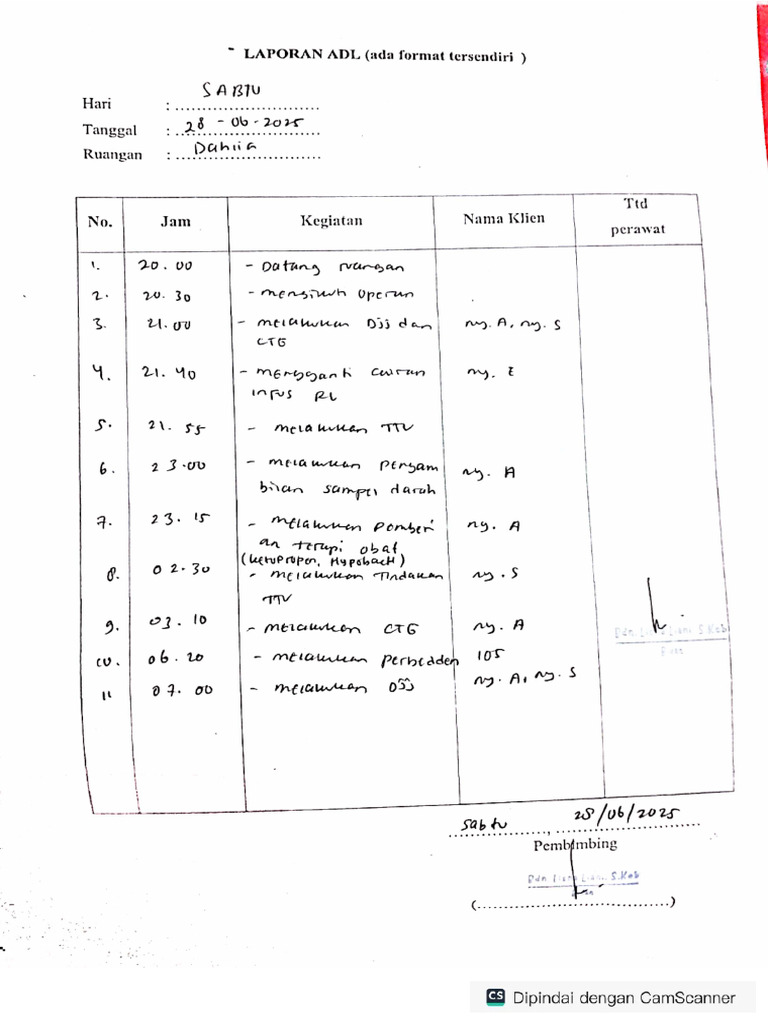 LAPORAN ADL (ada format tersendiri )
Hari : SABTU
Tanggal : 28 - 06 - 2025
Ruangan : Dahlia
No. Jam Kegiatan Nama Klien Ttd perawat
1. 20.00 - Datang ruangan
2. 20.30 - mengikuti operan
3. 21.00 - melakukan DJJ dan ny. A, ny. S
CTG
4. 21.40 - mengganti cairan ny. E
infus RL
5. 21.55 - melakukan TTV
6. 23.00 - melakukan pengam ny. A
bilan sampel darah
7. 23.15 - melakukan pemberi ny. A
an terapi obat
(ketopropen, Hypobach)
8. 02.30 - melakukan Tindakan ny. S
TTV
9. 03.10 - melakukan CTG ny. A
10. 06.20 - melakukan perbedden 105
11 07.00 - melakukan DJJ ny. A, ny. S
S.Keb
sabtu, 28/06/2025
Pembimbing
S.Keb
(................................)
CS Dipindai dengan CamScanner